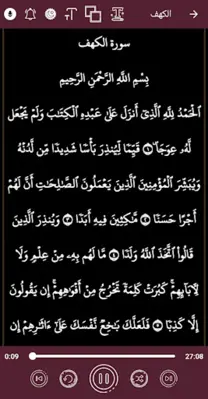 الكهف
سورة الكهف
بِسْمِ اللَّهِ الرَّحْمَٰنِ الرَّحِيمِ
ٱلْحَمْدُ لِلَّهِ ٱلَّذِىٓ أَنزَلَ عَلَىٰ عَبْدِهِ ٱلْكِتَٰبَ وَلَمْ يَجْعَل
لَّهُۥ عِوَجَا ۜ ١ قَيِّمًا لِّيُنذِرَ بَأْسًا شَدِيدًا مِّن لَّدُنْهُ
وَيُبَشِّرَ ٱلْمُؤْمِنِينَ ٱلَّذِينَ يَعْمَلُونَ ٱلصَّٰلِحَٰتِ أَنَّ لَهُمْ
أَجْرًا حَسَنًا ٢ مَّٰكِثِينَ فِيهِ أَبَدًا ٣ وَيُنذِرَ ٱلَّذِينَ
قَالُوا۟ ٱتَّخَذَ ٱللَّهُ وَلَدًا ٤ مَّا لَهُم بِهِۦ مِنْ عِلْمٍ وَلَا
لِءَابَآئِهِمْ ۚ كَبُرَتْ كَلِمَةً تَخْرُجُ مِنْ أَفْوَٰهِهِمْ ۚ إِن يَقُولُونَ
إِلَّا كَذِبًا ٥ فَلَعَلَّكَ بَٰخِعٌ نَّفْسَكَ عَلَىٰٓ ءَاثَٰرِهِمْ إِن
0:09 27:08